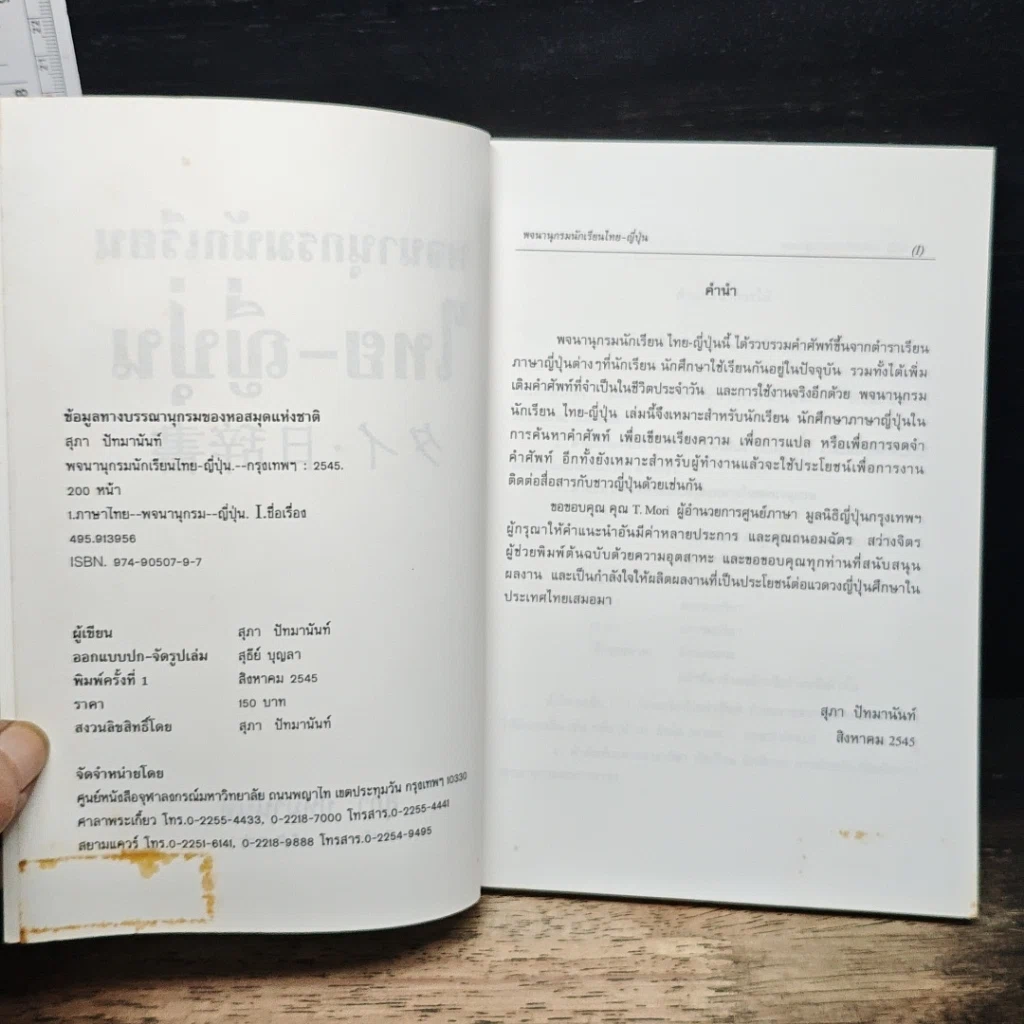 ข้อมูลทางบรรณานุกรมของหอสมุดแห่งชาติ
สุภา ปัทมานันท์
พจนานุกรมนักเรียนไทย-ญี่ปุ่น.--กรุงเทพฯ : 2545.
200 หน้า
1.ภาษาไทย--พจนานุกรม--ญี่ปุ่น. I.ชื่อเรื่อง
495.913956
ISBN. 974-90507-9-7
ผู้เขียน สุภา ปัทมานันท์
ออกแบบปก-จัดรูปเล่ม สุธีย์ บุญลา
พิมพ์ครั้งที่ 1 สิงหาคม 2545
ราคา 150 บาท
สงวนลิขสิทธิ์โดย สุภา ปัทมานันท์
จัดจำหน่ายโดย
ศูนย์หนังสือจุฬาลงกรณ์มหาวิทยาลัย ถนนพญาไท เขตประทุมวัน กรุงเทพฯ 10330
ศาลาพระเกี้ยว โทร.0-2255-4433, 0-2218-7000 โทรสาร.0-2255-4441
สยามแควร์ โทร.0-2251-6141, 0-2218-9888 โทรสาร.0-2254-9495
พจนานุกรมนักเรียนไทย-ญี่ปุ่น
(I)
คำนำ
พจนานุกรมนักเรียน ไทย-ญี่ปุ่นนี้ ได้รวบรวมคำศัพท์ขึ้นจากตำราเรียน
ภาษาญี่ปุ่นต่างๆที่นักเรียน นักศึกษาใช้เรียนกันอยู่ในปัจจุบัน รวมทั้งได้เพิ่ม
เติมคำศัพท์ที่จำเป็นในชีวิตประจำวัน และการใช้งานจริงอีกด้วย พจนานุกรม
นักเรียน ไทย-ญี่ปุ่น เล่มนี้จึงเหมาะสำหรับนักเรียน นักศึกษาภาษาญี่ปุ่นใน
การค้นหาคำศัพท์ เพื่อเขียนเรียงความ เพื่อการแปล หรือเพื่อการจดจำ
คำศัพท์ อีกทั้งยังเหมาะสำหรับผู้ทำงานแล้วจะใช้ประโยชน์เพื่อการงาน
ติดต่อสื่อสารกับชาวญี่ปุ่นด้วยเช่นกัน
ขอขอบคุณ คุณ T. Mori ผู้อำนวยการศูนย์ภาษา มูลนิธิญี่ปุ่นกรุงเทพฯ
ผู้กรุณาให้คำแนะนำอันมีค่าหลายประการ และคุณถนอมฉัตร สว่างจิตร
ผู้ช่วยพิมพ์ต้นฉบับด้วยความอุตสาหะ และขอขอบคุณทุกท่านที่สนับสนุน
ผลงาน และเป็นกำลังใจให้ผลิตผลงานที่เป็นประโยชน์ต่อแวดวงญี่ปุ่นศึกษาใน
ประเทศไทยเสมอมา
สุภา ปัทมานันท์
สิงหาคม 2545